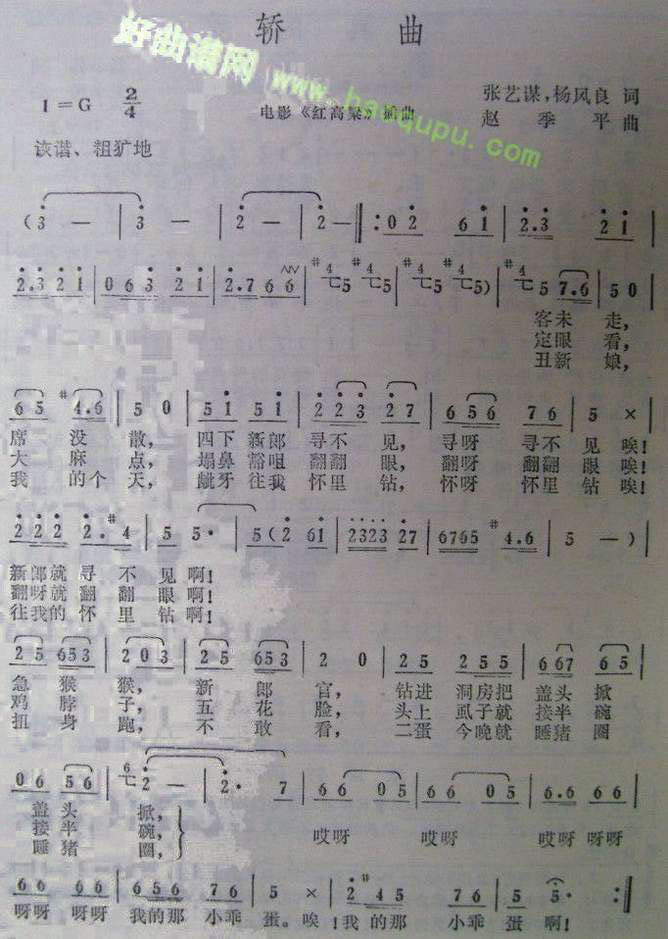 轿 曲
好曲谱网 www.haoqupu.com
1=G 2/4
电影《红高粱》插曲
张艺谋，杨凤良 词
赵季平 曲
诙谐、粗犷地
(3̇ — | 3̇ — | 2̇ — | 2̇ — ‖: 0 2̇ 6 1̇ | 2̇.3̇ 2̇ 1̇ |
2̇.3̇ 2̇ 1̇ | 0 6 3̇ 2̇ 1̇ | 2̇.7 6 6 | #4 5 #4 5 | #4 5 #4 5) | #4 5 7.6 | 5 0 |
客未 走，
定眼 看，
丑新 娘，
6 5 #4.6 | 5 0 | 5 1̇ 5 1̇ | 2̇ 2̇ 3̇ 2̇ 7 | 6 5 6 7 6 | 5 × |
席 没 散， 四下 新郎 寻不 见，寻呀 寻不 见 唉！
大 麻 点， 塌鼻 豁咀 翻翻 眼，翻呀 翻翻 眼 唉！
我 的个 天， 龇牙 往我 怀里 钻，怀呀 怀里 钻 唉！
2̇ 2̇ 2̇ 2̇.#4 | 5 5. | 5 (2̇ 6 1̇ | 2̇3̇2̇3̇ 2̇7 | 6765 #4.6 | 5 —) |
新郎就寻 不 见啊！
翻呀就翻 翻 眼啊！
往我的怀 里 钻啊！
2 5 6 5 3 | 2 0 3 | 2 5 6 5 3 | 2 0 | 2 5 2 5 5 | 6 6 7 6 5 |
急 猴 猴， 新 郎 官， 钻进 洞房把 盖头 掀
鸡 脖 子， 五 花 脸， 头上 虱子就 接半 碗
扭 身 跑， 不 敢 看， 二蛋 今晚就 睡猪 圈
0 6 5 6 | 6 2̇ — | 2̇. 7 | 6 6 0 5 | 6 6 0 5 | 6.6 6 6 |
盖头 掀， 哎呀 哎呀 哎呀 呀呀
接半 碗，
睡猪 圈，
6 6 6 6 | 6 5 6 7 6 | 5 × | 2̇ #4 5 7 6 | 5 5. :‖
呀呀 呀呀 我的那 小乖 蛋。唉！我 的那 小乖 蛋啊！